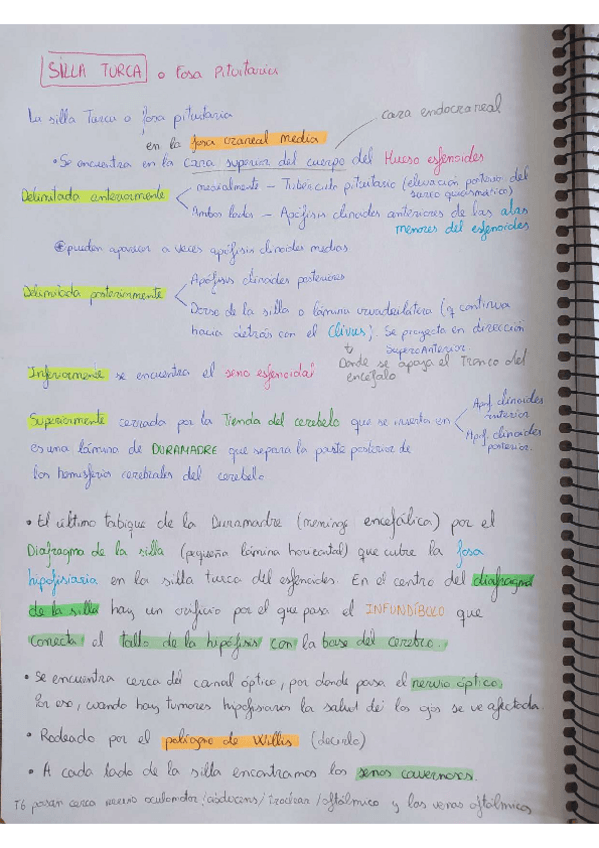 SILLA TURCA o Fosa Pituitaria
La silla Turca o fosa pituitaria
cara endocraneal
en la fosa craneal media
• Se encuentra en la cara superior del cuerpo del Hueso esfenoides
Delimitada anteriormente
medialmente – Tubérculo pituitario (elevación posterior del surco quiasmático)
Ambos lados – Apófisis clinoides anteriores de las alas menores del esfenoides
pueden aparecer a veces apófisis clinoides medias
Delimitada posteriormente
Apófisis clinoides posteriores
Dorso de la silla o lámina cuadrilátera (q continua
hacia detrás con el Clivus). Se proyecta en dirección
SuperoAnterior
Donde se apoya el Tronco del
encéfalo
Inferiormente se encuentra el seno esfenoidal
Superiormente cerrada por la Tienda del cerebelo que se inserta en
Apf. clinoides anterior
Apf. clinoides posterior.
es una lámina de DURAMADRE que separa la parte posterior de
los hemisferios cerebrales del cerebelo
• El último tabique de la Duramadre (meninge encefálica) por el
Diafragma de la silla (pequeña lámina horizontal) que cubre la fosa
hipofisiaria en la silla turca del esfenoides. En el centro del diafragma
de la silla hay un orificio por el que pasa el INFUNDÍBOLO que
conecta el tallo de la hipófisis con la base del cerebro.
• Se encuentra cerca del canal óptico, por donde pasa el nervio óptico.
Por eso, cuando hay tumores hipofisarios la salud de los ojos se ve afectada.
• Rodeado por el polígono de Willis (círculo)
• A cada lado de la silla encontramos los senos cavernosos.
Tb pasan cerca nervio oculomotor/abducens/troclear/oftálmico y las venas oftálmicas